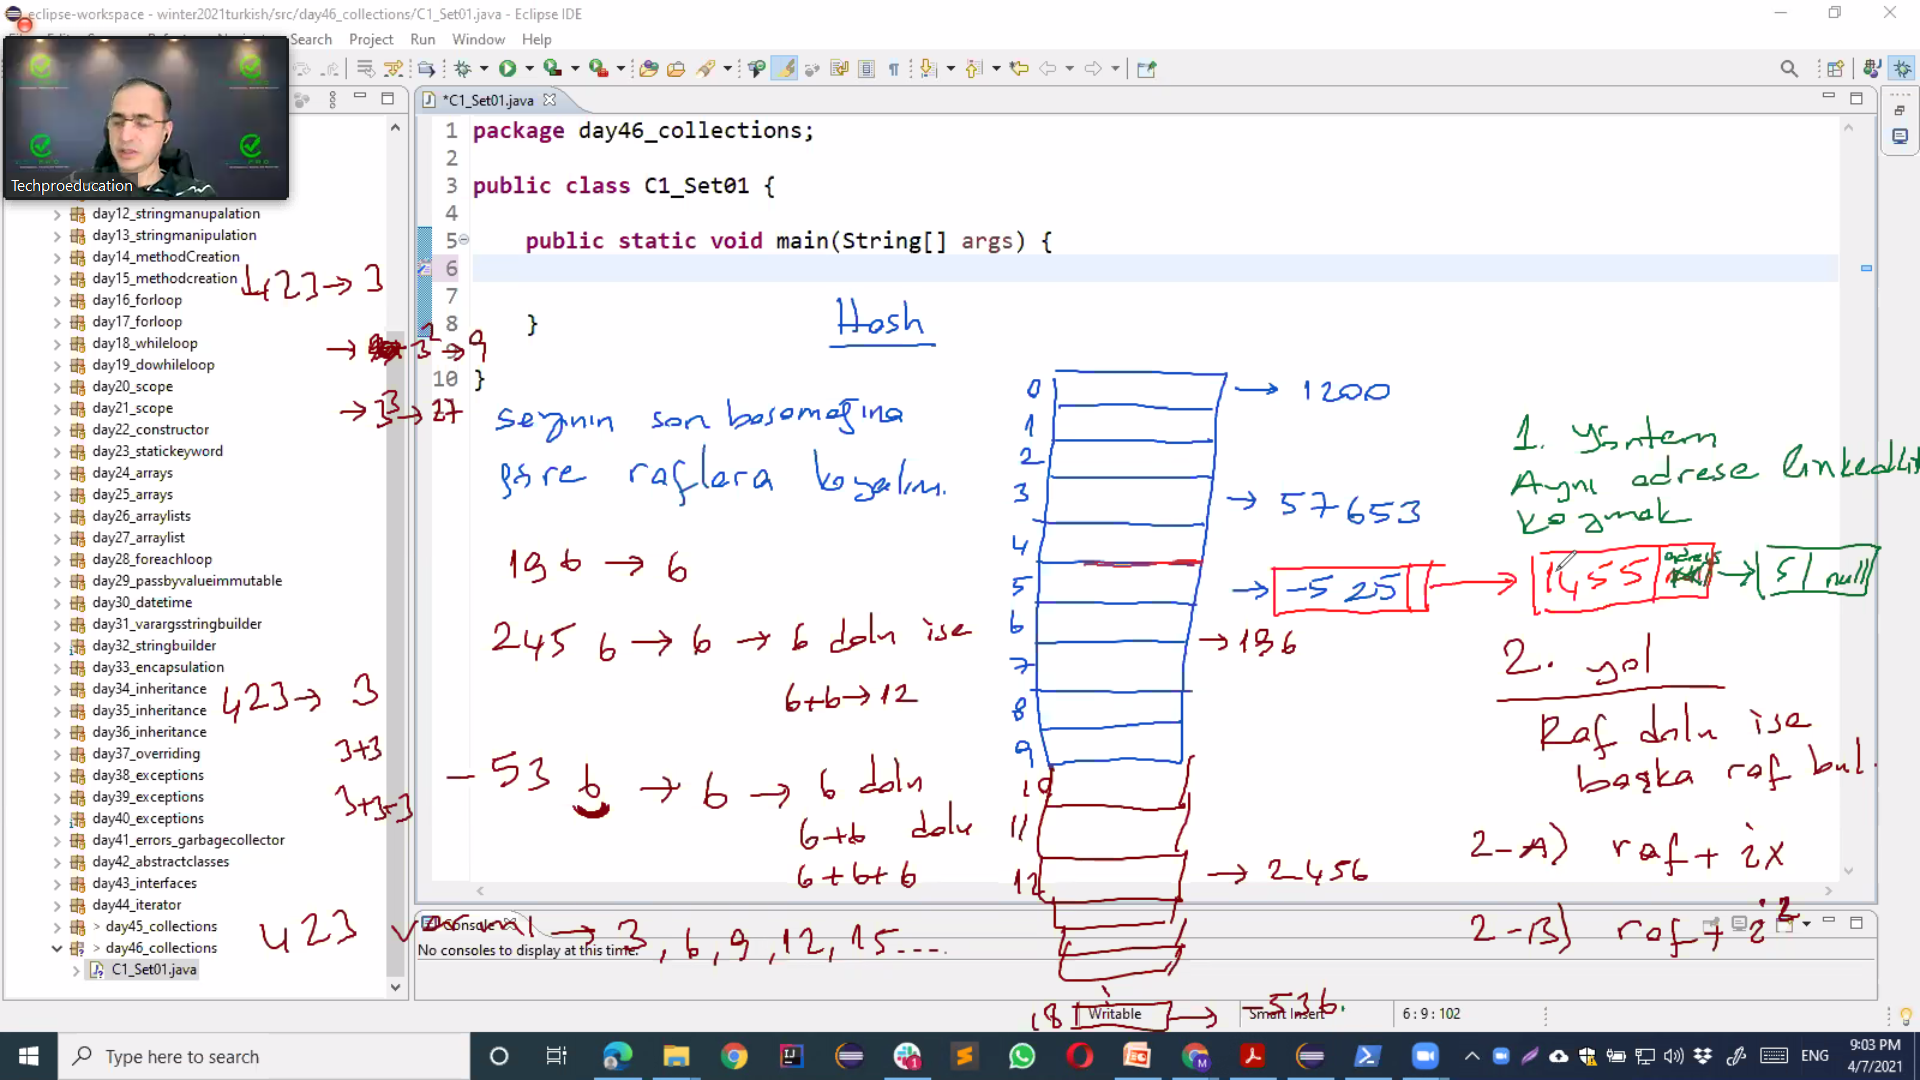 eclipse-workspace - winter2021turkish/src/day46_collections/C1_Set01.java - Eclipse IDE
Search Project Run Window Help
Techproeducation
*C1_Set01.java
1 package day46_collections;
2
3 public class C1_Set01 {
4
5 public static void main(String[] args) {
6
7
8 }
9
10 }
day12_stringmanupalation
day13_stringmanipulation
day14_methodCreation
day15_methodcreation
day16_forloop
day17_forloop
day18_whileloop
day19_dowhileloop
day20_scope
day21_scope
day22_constructor
day23_statickeyword
day24_arrays
day25_arrays
day26_arraylists
day27_arraylist
day28_foreachloop
day29_passbyvalueimmutable
day30_datetime
day31_varargsstringbuilder
day32_stringbuilder
day33_encapsulation
day34_inheritance
day35_inheritance
day36_inheritance
day37_overriding
day38_exceptions
day39_exceptions
day40_exceptions
day41_errors_garbagecollector
day42_abstractclasses
day43_interfaces
day44_iterator
> day45_collections
> day46_collections
C1_Set01.java
423 → 3
→ 3² → 9
→ 3³ → 27
423 → 3
3+3
3+3+3
Hash
sayının son basamağına
göre raflara koyalım.
196 → 6
2456 → 6 → 6 dolu ise
6+6 → 12
-536 → 6 → 6 dolu
6+6 dolu
6+6+6
423 → 3, 6, 9, 12, 15....
0 → 1200
1
2
3 → 57653
4
5 → -525 → 1455 adres → 5 | null
6 → 196
7
8
9
10
11
12 → 2456
18 → -536.
1. Yöntem
Aynı adrese linkedList
koymak
2. yol
Raf dolu ise
başka raf bul.
2-A) raf + ix
2-B) raf + i²
Console
No consoles to display at this time.
Writable
Smart Insert
6 : 9 : 102
Type here to search
ENG
9:03 PM
4/7/2021